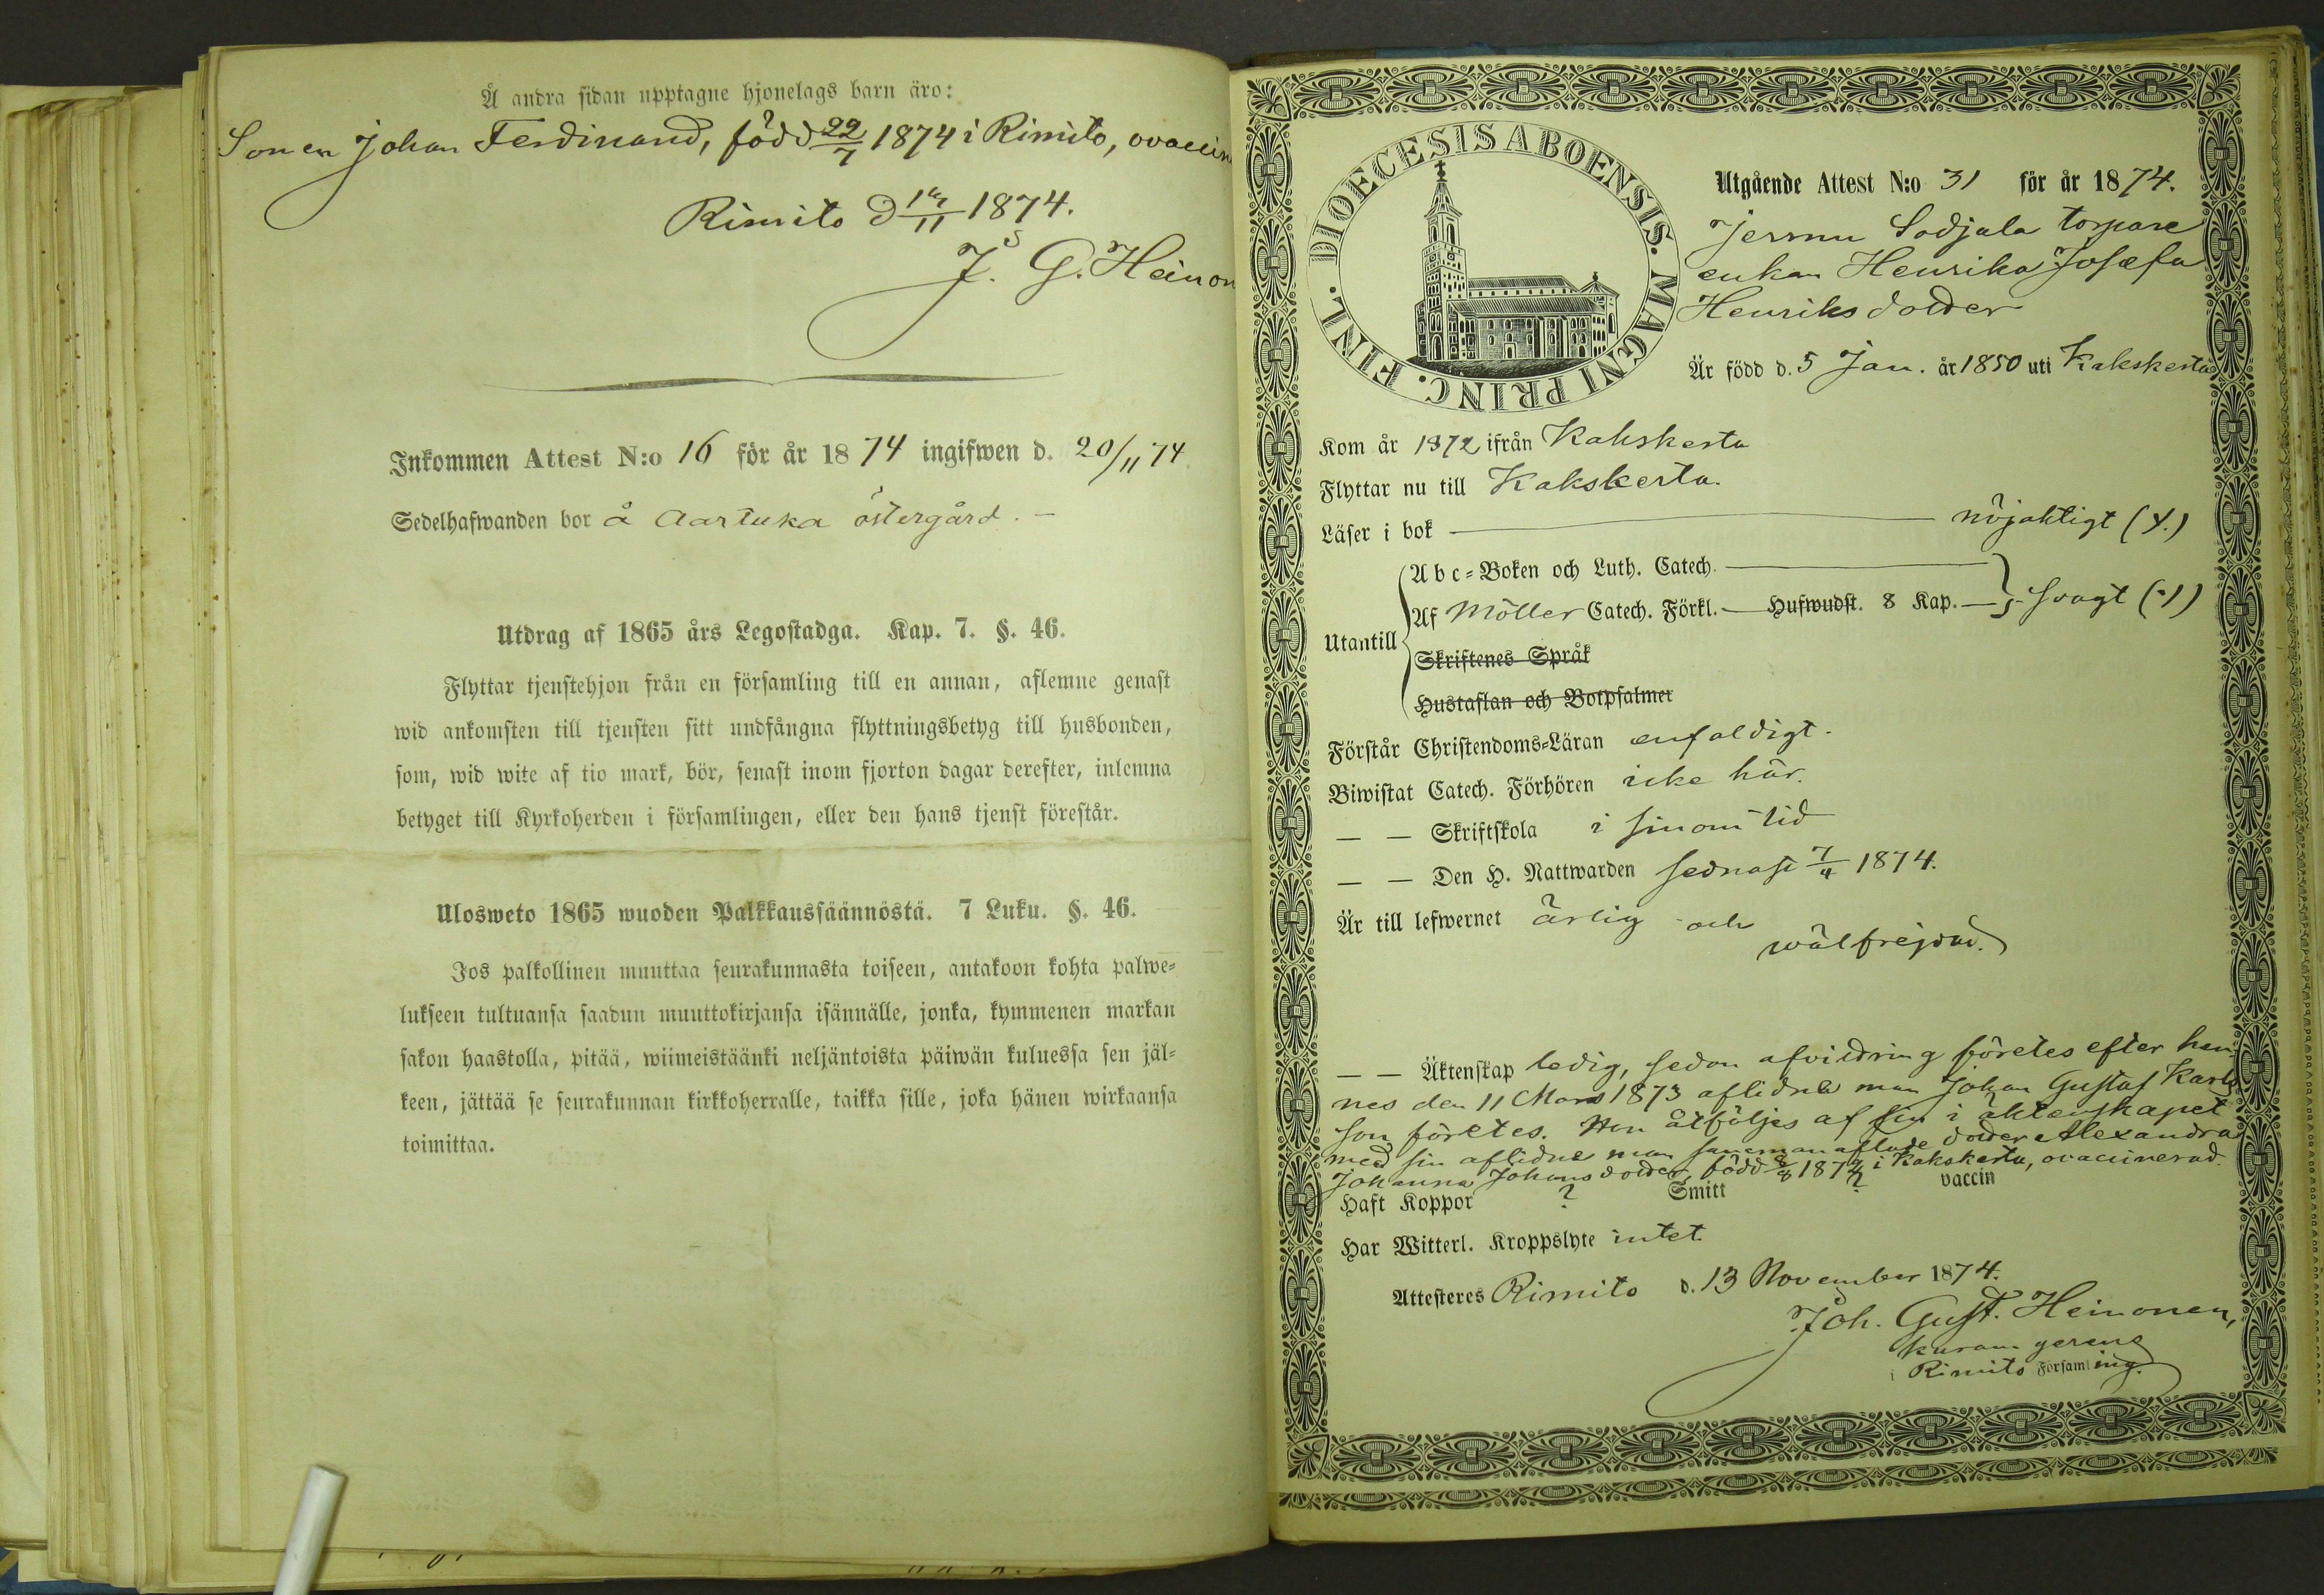 Å andra sidan upptagne hjonelags barn äro:
Sonen Johan Ferdinand, född 22/7 1874 i Rimito, ovaccin
Rimito d 14/11 1874.
J. G. Heinon
Inkommen Attest N:o 16 för år 1874 ingifwen d. 20/11 74.
Sedelhafwanden bor å Aartuka östergård. –
Utdrag af 1865 års Legostadga. Kap. 7. §. 46.
Flyttar tjenstehjon från en församling till en annan, aflemne genast
wid ankomsten till tjensten sitt undfångna flyttningsbetyg till husbonden,
som, wid wite af tio mark, bör, senast inom fjorton dagar derefter, inlemna
betyget till Kyrkoherden i församlingen, eller den hans tjenst förestår.
Ulosweto 1865 wuoden Palkkaussäännöstä. 7 Luku. §. 46.
Jos palkollinen muuttaa seurakunnasta toiseen, antakoon kohta palwe=
lukseen tultuansa saadun muuttokirjansa isännälle, jonka, kymmenen markan
sakon haastolla, pitää, wiimeistäänki neljäntoista päiwän kuluessa sen jäl=
keen, jättää se seurakunnan kirkkoherralle, taikka sille, joka hänen wirkaansa
toimittaa.
DIOECESIS ABOENSIS. MAGNI PRINC. FINL.
Utgående Attest N:o 31 för år 1874.
Jermu Sodjala torpare
enkan Henrika Josefa
Henriksdotter
Är född d. 5 Jan. år 1850 uti Kakskerta
Kom år 1872 ifrån Kakskerta
Flyttar nu till Kakskerta.
Läser i bok nöjaktigt
Utantill
Abc=Boken och Luth. Catech.
Af Möller Catech. Förkl. — Hufwudst. 8 Kap. — svagt
Skriftenes Språk
Hustaflan och Botpsalmer
Förstår Christendoms=Läran enfaldigt.
Biwistat Catech. Förhören icke här.
— — Skriftskola i sinom tid
— — Den H. Nattwarden sednast 7/4 1874.
Är till lefwernet ärlig och
wälfrejdad.
— — Äktenskap ledig, sedan afvittring företes efter hen
nes den 11 Mars 1873 aflidne man Johan Gustaf Karls
son företes. Hon åtföljes af sin i äktenskapet
med sin aflidne man sammanaflade dotter Alexandra
Johanna Johansdotter, född 8/8 1872 i Kakskerta, ovaccinerad.
Haft Koppor ? Smitt ? vaccin
Har Witterl. Kroppslyte intet.
Attesteres Rimito d. 13 November 1874.
Joh. Gust. Heinonen,
kuram gerens
i Rimito Församling.